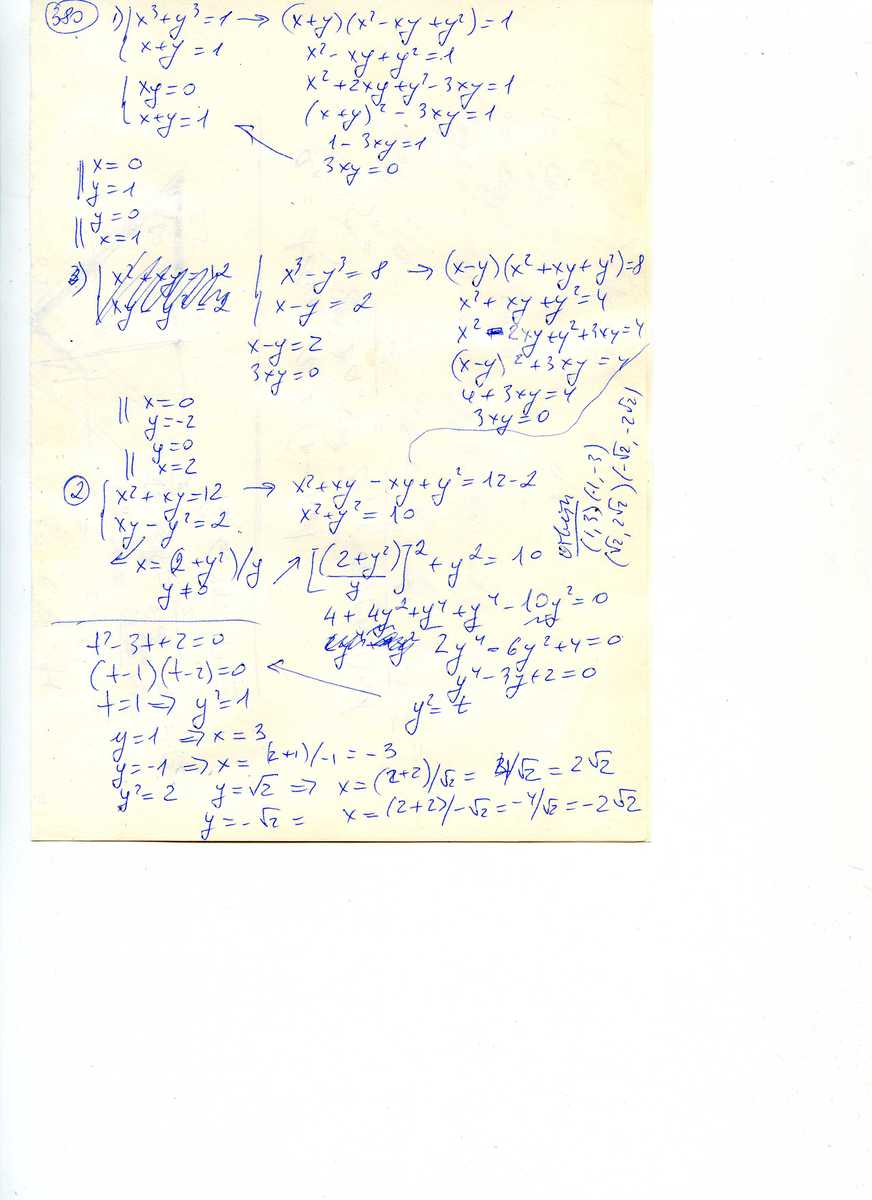 380 1) { x³+y³=1 → (x+y)(x²-xy+y²)=1
x+y=1 x²-xy+y²=1
{ xy=0 x²+2xy+y²-3xy=1
x+y=1 (x+y)²-3xy=1
1-3xy=1
3xy=0
|| x=0
y=1
|| y=0
x=1
3) { x³-y³=8 → (x-y)(x²+xy+y²)=8
x-y=2 x²+xy+y²=4
x²-2xy+y²+3xy=4
x-y=2 (x-y)²+3xy=4
3xy=0 4+3xy=4
3xy=0
|| x=0
y=-2
|| y=0
x=2
2 { x²+xy=12 → x²+xy-xy+y²=12-2
xy-y²=2 x²+y²=10
x=(2+y²)/y ↗ [(2+y²)/y]²+y²=10
y≠0
4+4y²+y⁴+y⁴-10y²=0
2y⁴-6y²+4=0
y⁴-3y+2=0
y²=t
t²-3t+2=0
(t-1)(t-2)=0
t=1 ⇒ y²=1
y=1 ⇒ x=3
y=-1 ⇒ x=(2+1)/-1=-3
y²=2 y=√2 ⇒ x=(2+2)/√2=4/√2=2√2
y=-√2= x=(2+2)/-√2=-4/√2=-2√2
ответы
(1,3)(-1,-3)
(√2, 2√2)(-√2, -2√2)